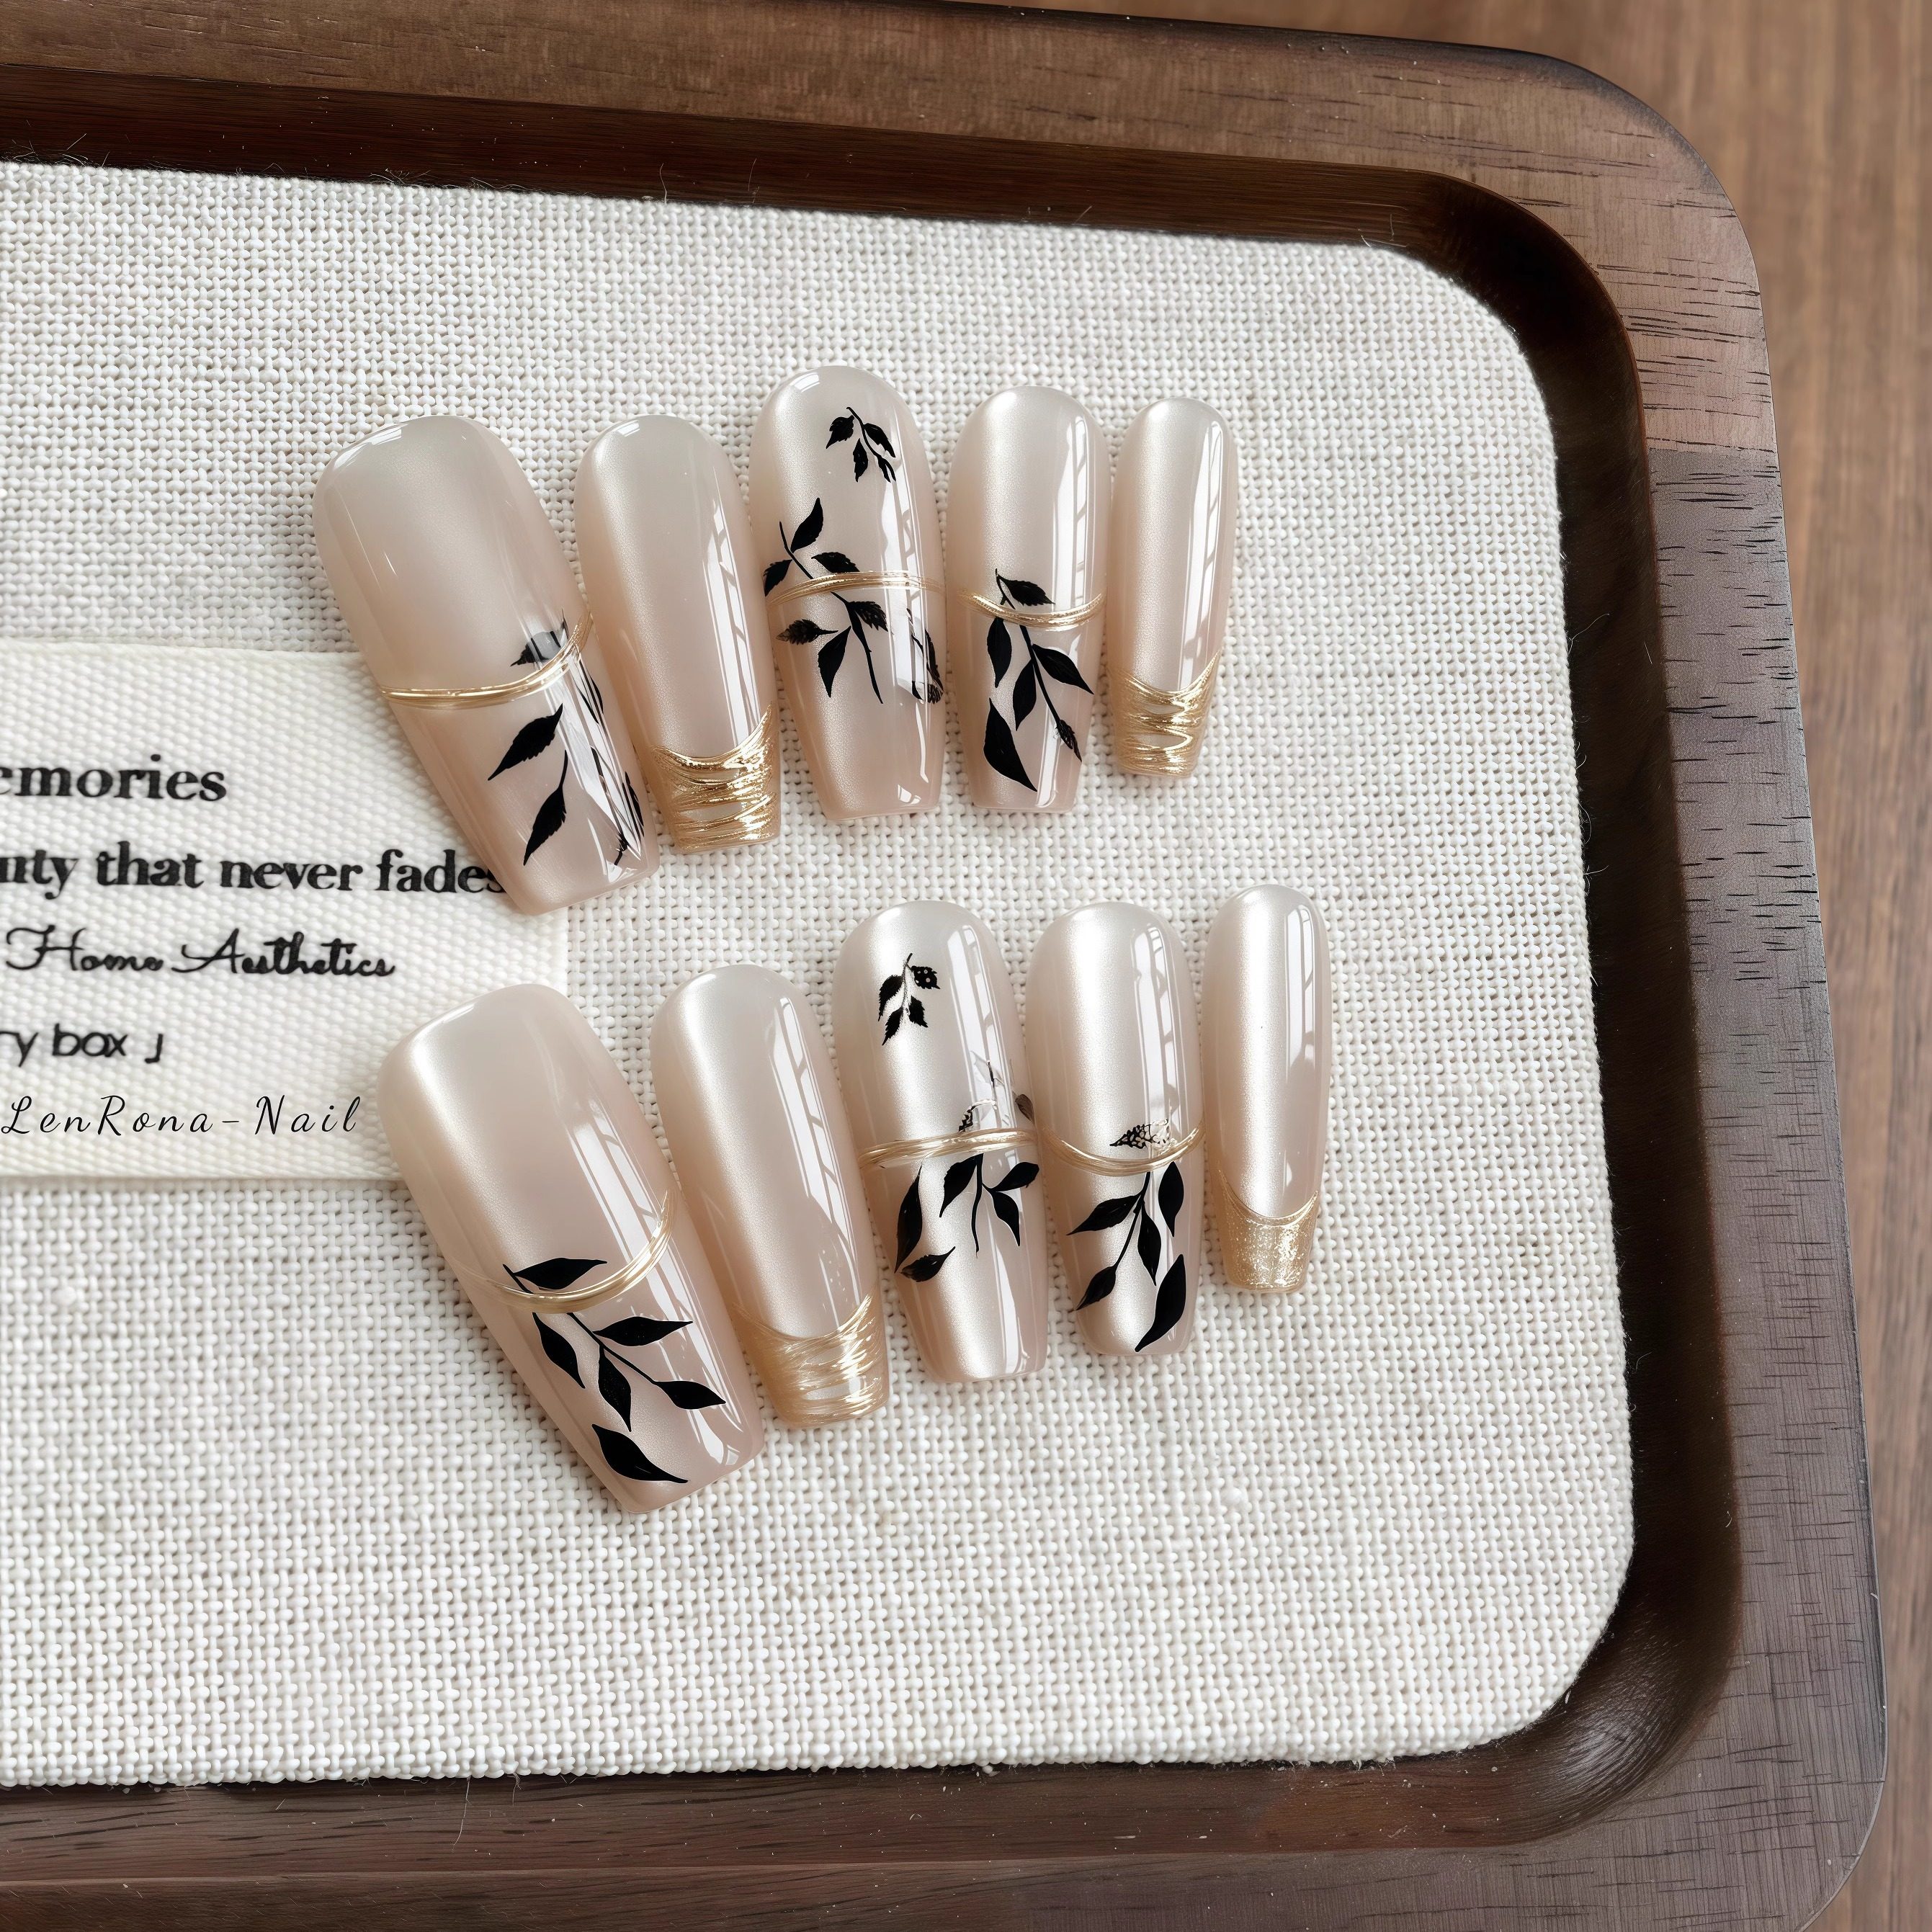 emories
uty that never fades
Home Aesthetics
ry box 」
LenRona-Nail